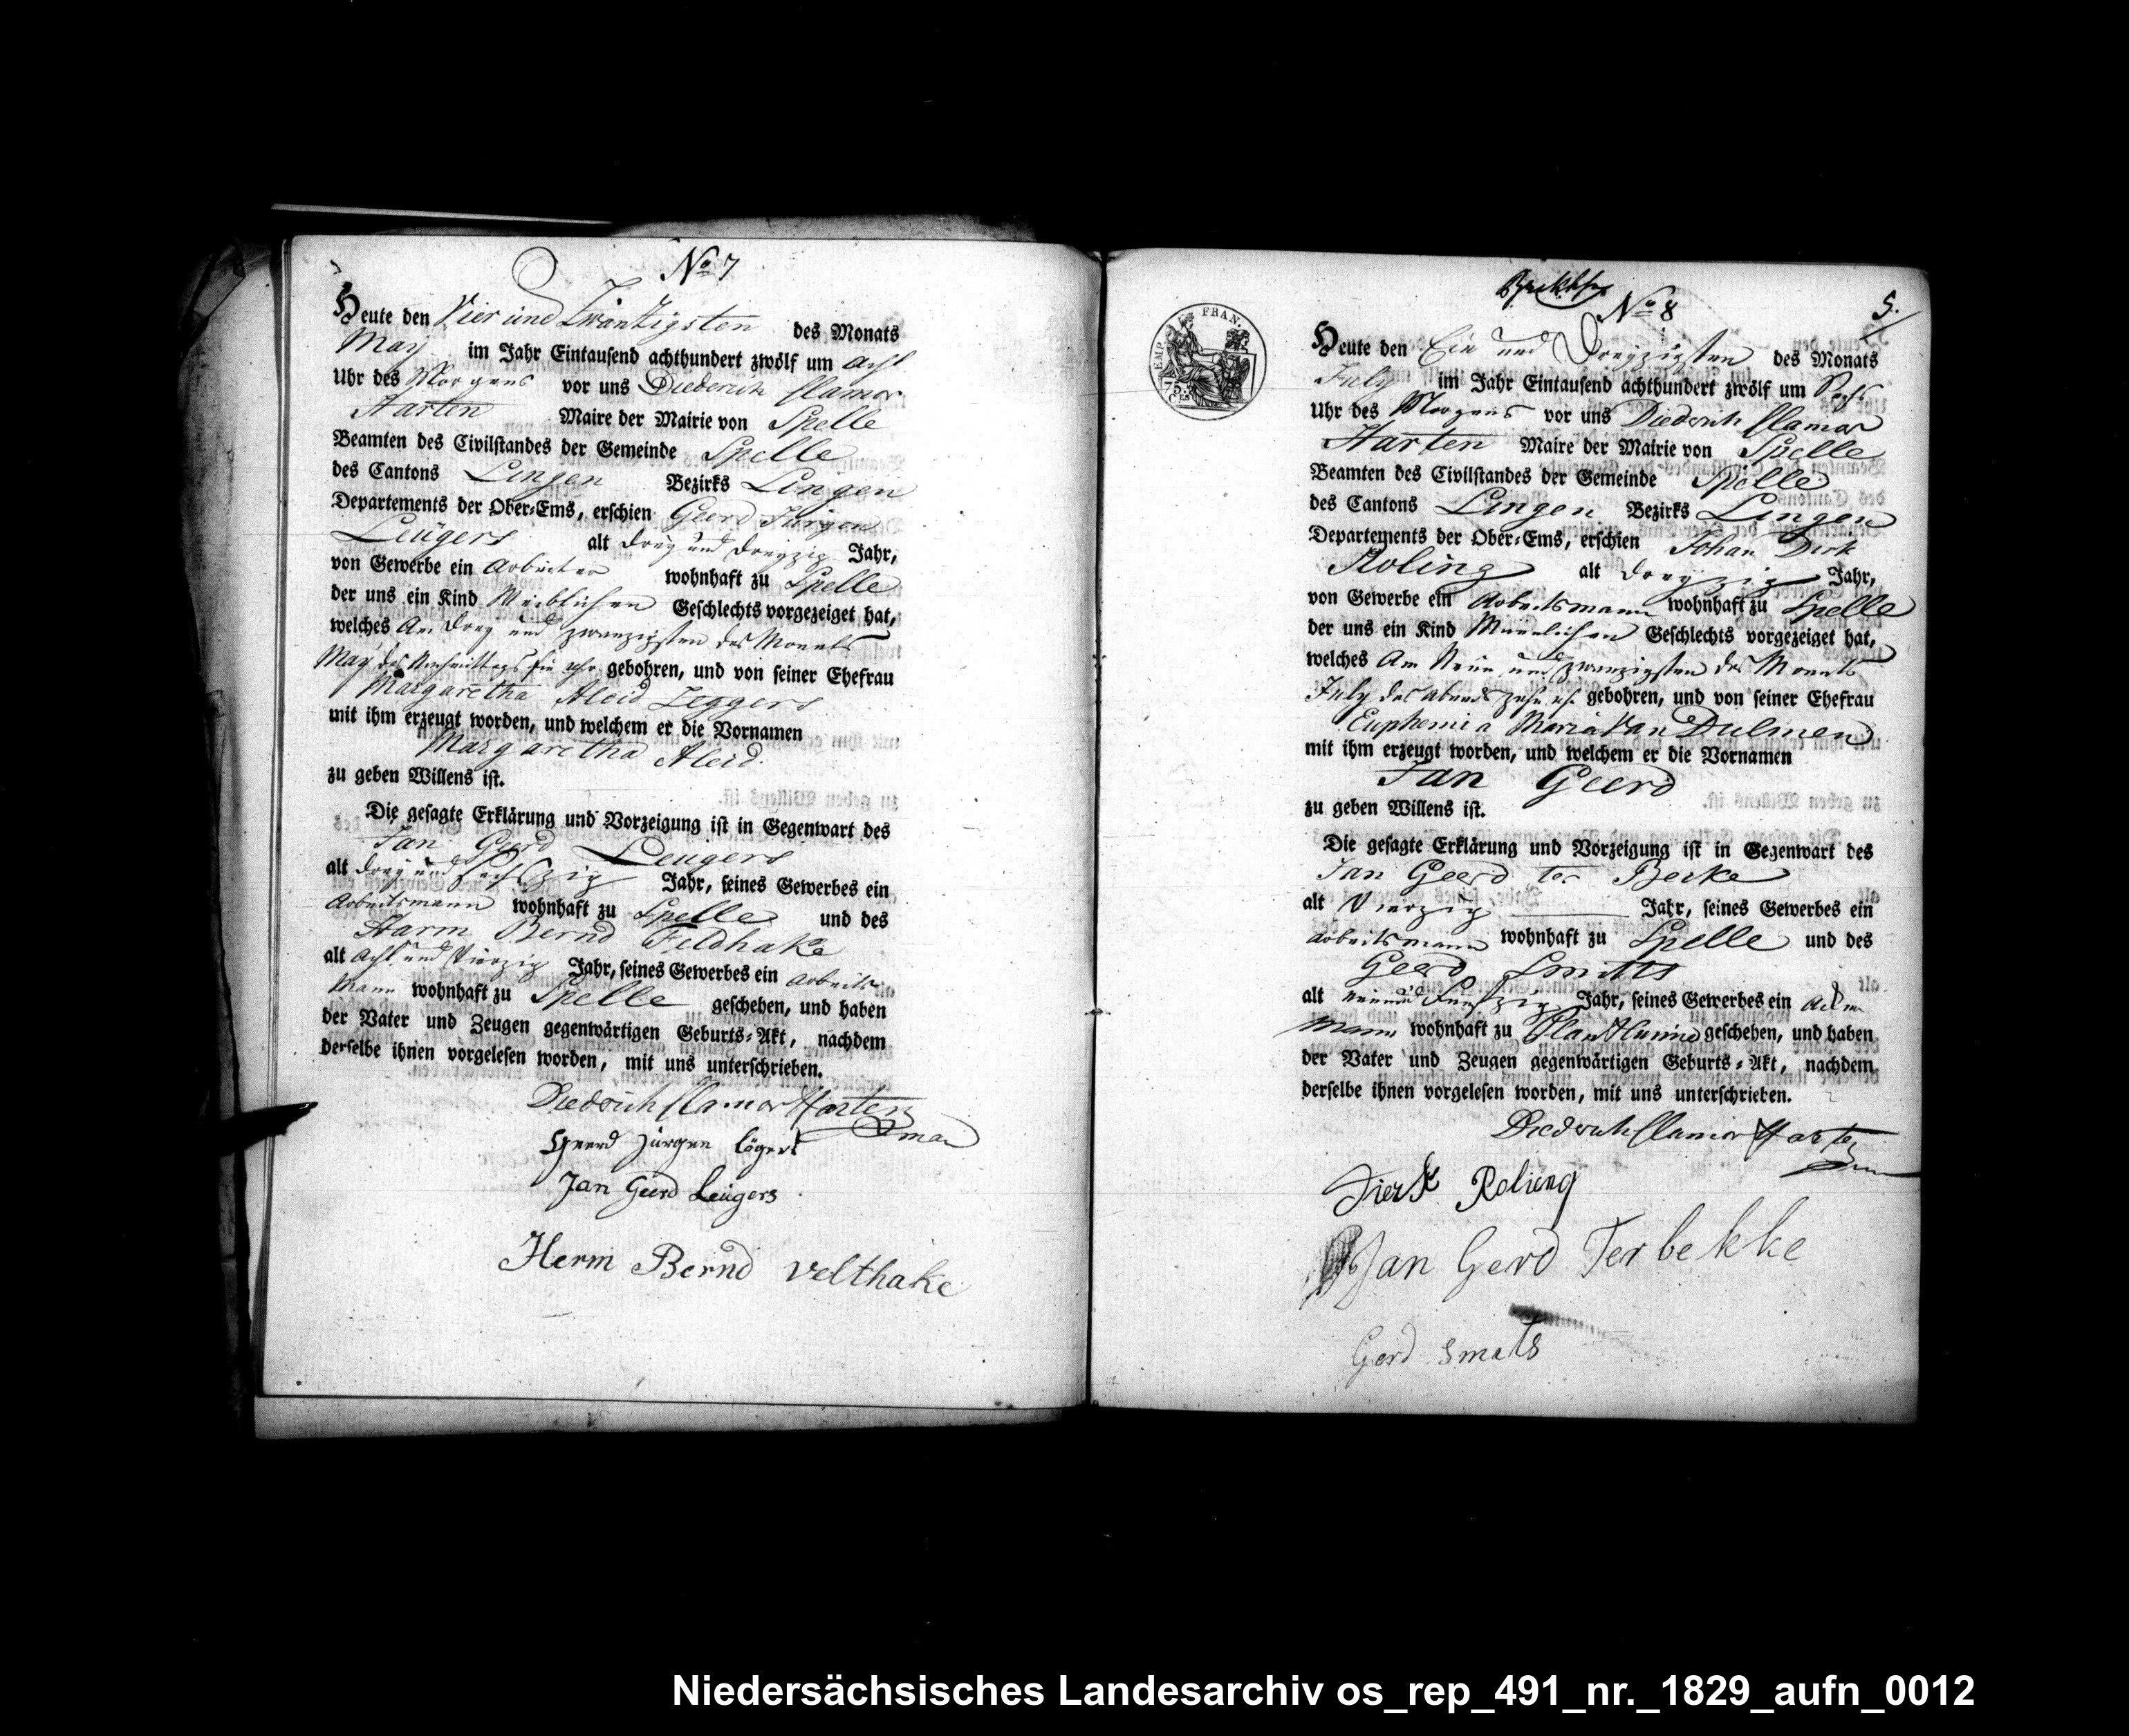 No 7
Heute den Vier und Zwantzigsten des Monats
May im Jahr Eintausend achthundert zwölf um acht
Uhr des Morgens vor uns Diederich Clamor
Harten Maire der Mairie von Spelle
Beamten des Civilstandes der Gemeinde Spelle
des Cantons Lingen Bezirks Lingen
Departements der Ober-Ems, erschien Geerd Jürgen
Leügers alt drey und dreyzig Jahr,
von Gewerbe ein Arbeiter wohnhaft zu Spelle
der uns ein Kind Weiblichen Geschlechts vorgezeiget hat,
welches Am drey und zwanzigsten des Monats
May des Nachmittags uhr gebohren, und von seiner Ehefrau
Margaretha Aleid Leggers
mit ihm erzeugt worden, und welchem er die Vornamen
Margaretha Aleid
zu geben Willens ist.
Die gesagte Erklärung und Vorzeigung ist in Gegenwart des
Jan Geerd Leugers
alt drey und sechszig Jahr, seines Gewerbes ein
Arbeitsmann wohnhaft zu Spelle und des
Harm Bernd Feldhake
alt acht und Vierzig Jahr, seines Gewerbes ein Arbeits
mann wohnhaft zu Spelle geschehen, und haben
der Vater und Zeugen gegenwärtigen Geburts-Akt, nachdem
derselbe ihnen vorgelesen worden, mit uns unterschrieben.
Diedrich Clamor Harten
Geerd Jürgen Lögers
Jan Geerd Leugers
Herm Bernd Velthake
No 8
5.
EMP. FRAN.
75.
CES
Heute den Ein und Dreyzigsten des Monats
July im Jahr Eintausend achthundert zwölf um
Uhr des Morgens vor uns Diederich Clamor
Harten Maire der Mairie von Spelle
Beamten des Civilstandes der Gemeinde Spelle
des Cantons Lingen Bezirks Lingen
Departements der Ober-Ems, erschien Johan Dirk
Roling alt dreyzig Jahr,
von Gewerbe ein Arbeitsmann wohnhaft zu Spelle
der uns ein Kind Männlichen Geschlechts vorgezeiget hat,
welches Am Neün und zwanzigsten des Monats
July des abends zehn uhr gebohren, und von seiner Ehefrau
Euphemia Maria Van Dulmen
mit ihm erzeugt worden, und welchem er die Vornamen
Jan Geerd
zu geben Willens ist.
Die gesagte Erklärung und Vorzeigung ist in Gegenwart des
Jan Geerd ter Beeke
alt Vierzig Jahr, seines Gewerbes ein
Arbeitsmann wohnhaft zu Spelle und des
Geerd Smitts
alt Jahr, seines Gewerbes ein Acker
Mann wohnhaft zu Plantlunne geschehen, und haben
der Vater und Zeugen gegenwärtigen Geburts-Akt, nachdem
derselbe ihnen vorgelesen worden, mit uns unterschrieben.
Diedrich Clamor Harten
Dierk Roling
Jan Gerd Terbekke
Gerd Smits
Niedersächsisches Landesarchiv os_rep_491_nr._1829_aufn_0012